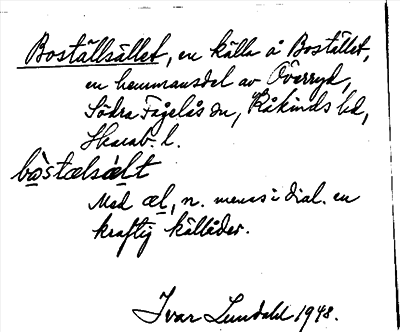 Boställsället, en källa å Bostället,
en hemmansdel av Överryd,
Södra Fågelås sn, Kåkinds hd,
Skarab. l.
bo̱stælsæ̱lt
Med æl, n. menas i dial. en
kraftig källåder.
Ivar Lundahl 1948.